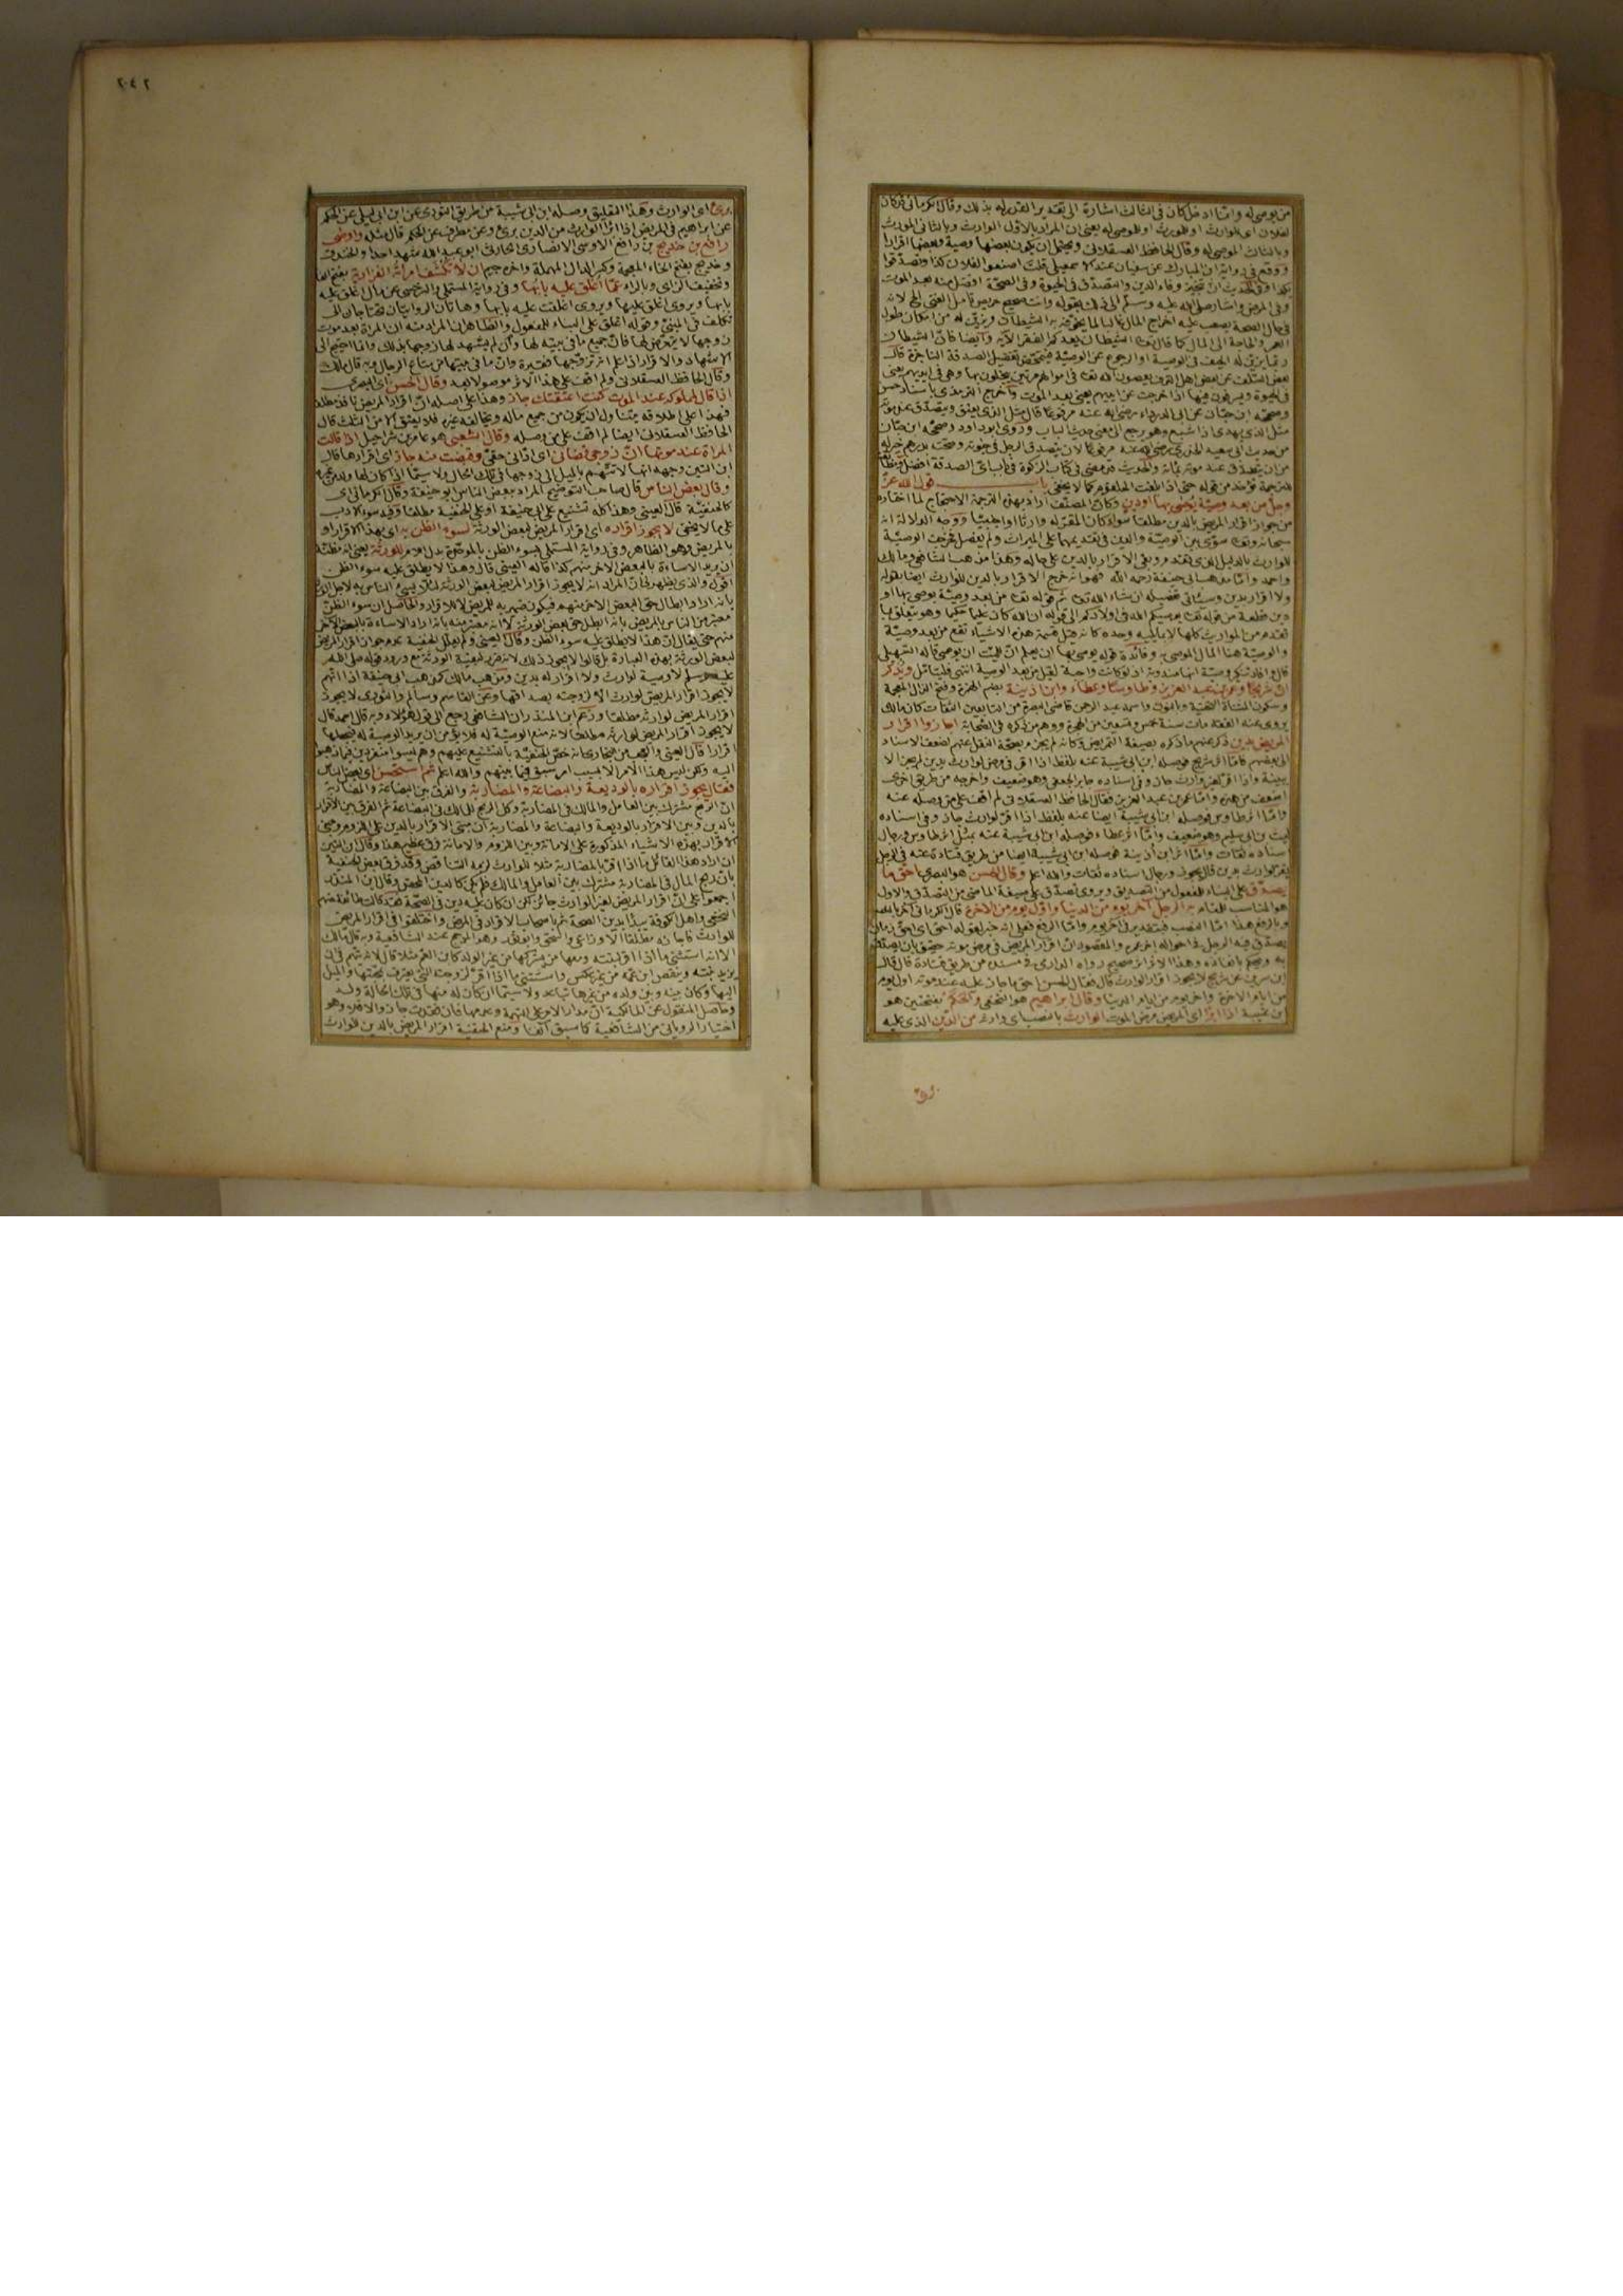 من يوصى له وانما ادخل كان فى الثالث اشارة الى تقدير القدر له بذلك وقال الكرمانى قد كان
لفلان اى للوارث او للمورث او للموصى له يعنى ان المراد بالاول الوارث وبالثانى المورث
وبالثالث الموصى له وقال الحافظ العسقلانى ويحتمل ان يكون بعضها وصية وبعضها اقرارا
ووقع فى رواية ابن المبارك عن سفيان عند الاسمعيلى قلت اصنعوا لفلان كذا وتصدقوا
بكذا وفى الحديث ان تنجيز وفاء الدين والتصدق فى الحيوة وفى الصحة افضل منه بعد الموت
وفى المرض واشار صلى الله عليه وسلم الى ذلك بقوله وانت صحيح حريص تأمل الغنى الخ لانه
فى حال الصحة يصعب عليه اخراج المال غالبا لما يخوفه به الشيطان ويزين له من امكان طول
العمر والحاجة الى المال كما قال تعالى الشيطان يعدكم الفقر الآية وايضا فان الشيطان
ربما يزين له الحيف فى الوصية او الرجوع عن الوصية فيتمحض تفضيل الصدقة الناجزة قال
بعض السلف عن بعض اهل الترف يعصون الله تعالى فى اموالهم مرتين يبخلون بها وهى فى ايديهم يعنى
فى الحيوة ويسرفون فيها اذا خرجت عن ايديهم يعنى بعد الموت واخرج الترمذى باسناد حسن
وصححه ابن حبان عن ابى الدرداء رضى الله عنه مرفوعا قال مثل الذى يعتق ويتصدق عند موته
مثل الذى يهدى اذا شبع وهو يرجع الى معنى حديث الباب وروى ابو داود وصححه ابن حبان
من حديث ابى سعيد الخدرى رضى الله عنه مرفوعا لان يتصدق الرجل فى حيوته وصحته بدرهم خير له
من ان يتصدق عند موته بمائة والحديث قد مضى فى كتاب الزكوة فى باب اى الصدقة افضل ومطابقته
للترجمة تؤخذ من قوله حتى اذا بلغت الحلقوم كما لا يخفى باب قول الله عز
وجل من بعد وصية يوصى بها او دين وكان المصنف اراد بهذه الترجمة الاحتجاج لما اختاره
من جواز اقرار المريض بالدين مطلقا سواء كان المقر له وارثا او اجنبيا ووجه الدلالة انه
سبحانه وتعالى سوى بين الوصية والدين فى تقديمهما على الميراث ولم يفصل فخرجت الوصية
للوارث بالدليل الذى تقدم وبقى الاقرار بالدين على حاله وهذا مذهب الشافعى ومالك
واحمد واما مذهب ابى حنيفة رحمه الله فهو انه خرج الاقرار بالدين للوارث ايضا بقوله
ولا اقرار بدين وسيأتى تفصيله ان شاء الله تعالى ثم قوله تعالى من بعد وصية يوصى بها او
دين قطعة من قوله تعالى يوصيكم الله فى اولادكم الى قوله ان الله كان عليما حكيما وهو متعلق بما
تقدم من المواريث كلها لا بما يليه وحده كانه قيل قسمة هذه الاشياء تقع من بعد وصية
والوصية هنا المال الموصى به وفائدة قوله يوصى بها ان يعلم ان للميت ان يوصى قاله السهيلى
قال وافاد تنكير وصية انها مندوبة اذ لو كانت واجبة لقيل من بعد الوصية انتهى فليتأمل ويذكر
ان شريحا وعمر بن عبد العزيز وطاوسا وعطاء وابن اذينة بضم الهمزة وفتح الذال المعجمة
وسكون المثناة التحتية وبالنون واسمه عبد الرحمن قاضى البصرة من التابعين الثقات
مات سنة خمس وتسعين من الهجرة ووهم من ذكره فى الصحابة اجازوا اقرار
المريض بدين
الى بعضهم فاما اثر شريح فوصله ابن ابى شيبة عنه بلفظ اذا اقر فى مرض لوارث بدين لم يجز الا
ببينة واذا اقر لغير وارث جاز وفى اسناده جابر الجعفى وهو ضعيف واخرجه من طريق اخرى
اضعف من هذه واما عمر بن عبد العزيز فقال الحافظ العسقلانى لم اقف على من وصله عنه
واما اثر طاوس فوصله ابن ابى شيبة ايضا عنه بلفظ اذا اقر لوارث جاز وفى اسناده
ليث بن ابى سليم وهو ضعيف واما اثر عطاء فوصله ابن ابى شيبة عنه بمثل اثر طاوس ورجال
اسناده ثقات واما اثر ابن اذينة فوصله ابن ابى شيبة ايضا من طريق قتادة عنه فى الرجل
يقر لوارث بدين قال يجوز ورجال اسناده ثقات والله اعلم وقال الحسن هو البصرى احق ما
يصدق على البناء للمفعول من التصديق ويروى تصدق على صيغة الماضى من التصدق والاول
هو المناسب للمقام به الرجل آخر يوم من الدنيا واول يوم من الآخرة قال الكرمانى
وبالرفع
يصدق فيه الرجل فى احواله آخر عمره والمقصود ان اقرار المريض فى مرض موته حقيق بان يصدق
به ويحكم بانفاذه وهذا الاثر صحيح رواه الدارمى فى مسنده من طريق قتادة قال قال
ابن سيرين عن شريح لا يجوز اقرار لوارث قال فقال الحسن احق ما جاز عليه عند موته اول يوم
من ايام الآخرة وآخر يوم من ايام الدنيا وقال ابراهيم هو النخعى والحكم بفتحتين هو
ابن عتيبة اذا ابرأ اى المريض مرض الموت الوارث بالنصب اى وارثه من الدين الذى عليه
برئ
٢٤٢
برئ اى الوارث وهذا التعليق وصله ابن ابى شيبة من طريق الثورى عن ابن ابى ليلى عن الحكم
عن ابراهيم فى المريض اذا ابرأ الوارث من الدين برئ وعن مطرف عن الحكم قال مثله واوصى
رافع بن خديج بن رافع الاوسى الانصارى الحارثى ابو عبد الله شهد احدا والخندق
وخديج بفتح الخاء المعجمة وكسر الدال المهملة وآخره جيم ان لا تكشف امرأته الفزارية بفتح الفا
وتخفيف الزاى وبالراء عما اغلق عليه بابها وفى رواية المستملى والسرخسى عن مال اغلق عليه
بابها ويروى اغلق عليها ويروى اغلقت عليه بابها وهاتان الروايتان تحتاجان الى
تكلف فى المبنى وقوله اغلق على البناء للمفعول والظاهر ان المراد منه ان المرأة بعد موت
زوجها لا يتعرض لها فان جميع ما فى بيته لها وان لم يشهد لها زوجها بذلك وانما احتيج الى
الاشهاد والاقرار اذا علم انه تزوجها فقيرة وان ما فى بيتها من متاع الرجال وبه قال مالك
وقال الحافظ العسقلانى ولم اقف على هذا الاثر موصولا بعد وقال الحسن اى البصرى
اذا قال لمملوكه عند الموت كنت اعتقتك جاز وهذا على اصله ان اقرار المريض نافذ مطلقا
فهذا على اطلاقه يتناول ان يكون من جميع ماله ويخالفه غيره فلا يعتق الا من الثلث قال
الحافظ العسقلانى ايضا لم اقف على من وصله وقال الشعبى هو عامر بن شراحيل اذا قالت
المرأة عند موتها ان زوجى قضانى اى ادانى حقى وقبضت منه جاز اى اقرارها قال
ابن التين وجهه انها لا تتهم بالميل الى زوجها فى تلك الحال ولا سيما اذا كان لها ولد من غيره
وقال بعض الناس قال صاحب التوضيح المراد ببعض الناس ابو حنيفة وقال الكرمانى اى
كالحنفية قال العينى وهذا كله تشنيع على ابى حنيفة او على الحنفية مطلقا وفيه سوء الادب
على ما لا يخفى لا يجوز اقراره اى اقرار المريض لبعض الورثة لسوء الظن به اى بهذا الاقرار او
بالمريض وهو الظاهر وفى رواية المستملى بسوء الظن بالموحدة بدل اللام للورثة يعنى انه مظنة
ان يريد الاساءة بالبعض الآخر منهم كذا قاله العينى قال وهذا لا يطلق عليه سوء الظن
اقول والذى يظهر لى ان المراد انه لا يجوز اقرار المريض لبعض الورثة لئلا يسىء الناس به
بانه اراد ابطال حق البعض الآخر منهم فيكون ضمير به للمريض لا للاقرار والحاصل ان سوء الظن
معتبر من الناس بالمريض بانه ابطل حق بعض الورثة لا انه معتبر منه بانه اراد الاساءة بالبعض الآخر
منهم حتى يقال ان هذا لا يطلق عليه سوء الظن وقال العينى ولم يعلل الحنفية عدم جواز اقرار المريض
لبعض الورثة بهذه العبارة بل قالوا لا يجوز ذلك لانه ضرر لبقية الورثة مع ورود قوله صلى الله
عليه وسلم لا وصية لوارث ولا اقرار له بدين ومذهب مالك كمذهب ابى حنيفة اذا اتهم
لا يجوز اقرار المريض لوارث الا لزوجته بصداقها وعن القاسم وسالم والثورى لا يجوز
اقرار المريض لوارثه مطلقا وزعم ابن المنذر ان الشافعى رجع الى قول هؤلاء وبه قال احمد قال
لا يجوز اقرار المريض لوارثه مطلقا لانه منع الوصية له فلا يؤمن ان يريد الوصية له فيجعلها
اقرارا قال العينى والعجب من البخارى انه خص الحنفية بالتشنيع عليهم وهم ليسوا منفردين فيما ذهبوا
اليه ولكن ليس هذا الامر الا بسبب امر سبق فيما بينهم والله اعلم ثم استحسن اى بعض الناس
فقال يجوز اقراره بالوديعة والبضاعة والمضاربة والفرق بين البضاعة والمضاربة
ان الربح مشترك بين العامل والمالك فى المضاربة وكل الربح للمالك فى البضاعة ثم الفرق بين الاقرار
بالدين وبين الاقرار بالوديعة والبضاعة والمضاربة ان مبنى الاقرار بالدين على اللزوم ومبنى
الاقرار بهذه الاشياء المذكورة على الامانة وبين اللزوم والامانة فرق عظيم هذا وقال ابن التين
ان اراد هذا القائل ما اذا اقر بالمضاربة مثلا للوارث لزمه التناقض وقد فرق بعض الحنفية
بان ربح المال فى المضاربة مشترك بين العامل والمالك فلم يكن كالدين المحض وقال ابن المنذر
اجمعوا على ان اقرار المريض لغير الوارث جائز لكن ان كان عليه دين فى الصحة فقد قالت طائفة منهم
النخعى واهل الكوفة يبدأ بدين الصحة ثم باصحاب الاقرار فى المرض واختلفوا فى اقرار المريض
للوارث فاجازه مطلقا الاوزاعى واسحق وابو ثور وهو المرجح عند الشافعية وبه قال مالك
الا انه استثنى ما اذا اقر لبنته ومعها من يشركها من غير الولد كابن العم مثلا قال لانه يتهم فى ان
يزيد بنته وينقص ابن عمه من غير عكس واستثنى ما اذا اقر لزوجته التى يعرف بمحبتها والميل
اليها وكان بينه وبين ولده من غيرها تباعد ولا سيما ان كان له منها فى تلك الحالة ولد
وحاصل المنقول عن المالكية ان مدار الامر على التهمة وعدمها فان فقدت جاز والا فلا وهو
اختيار الرويانى من الشافعية كما سبق آنفا ومنع الحنفية اقرار المريض بالدين للوارث